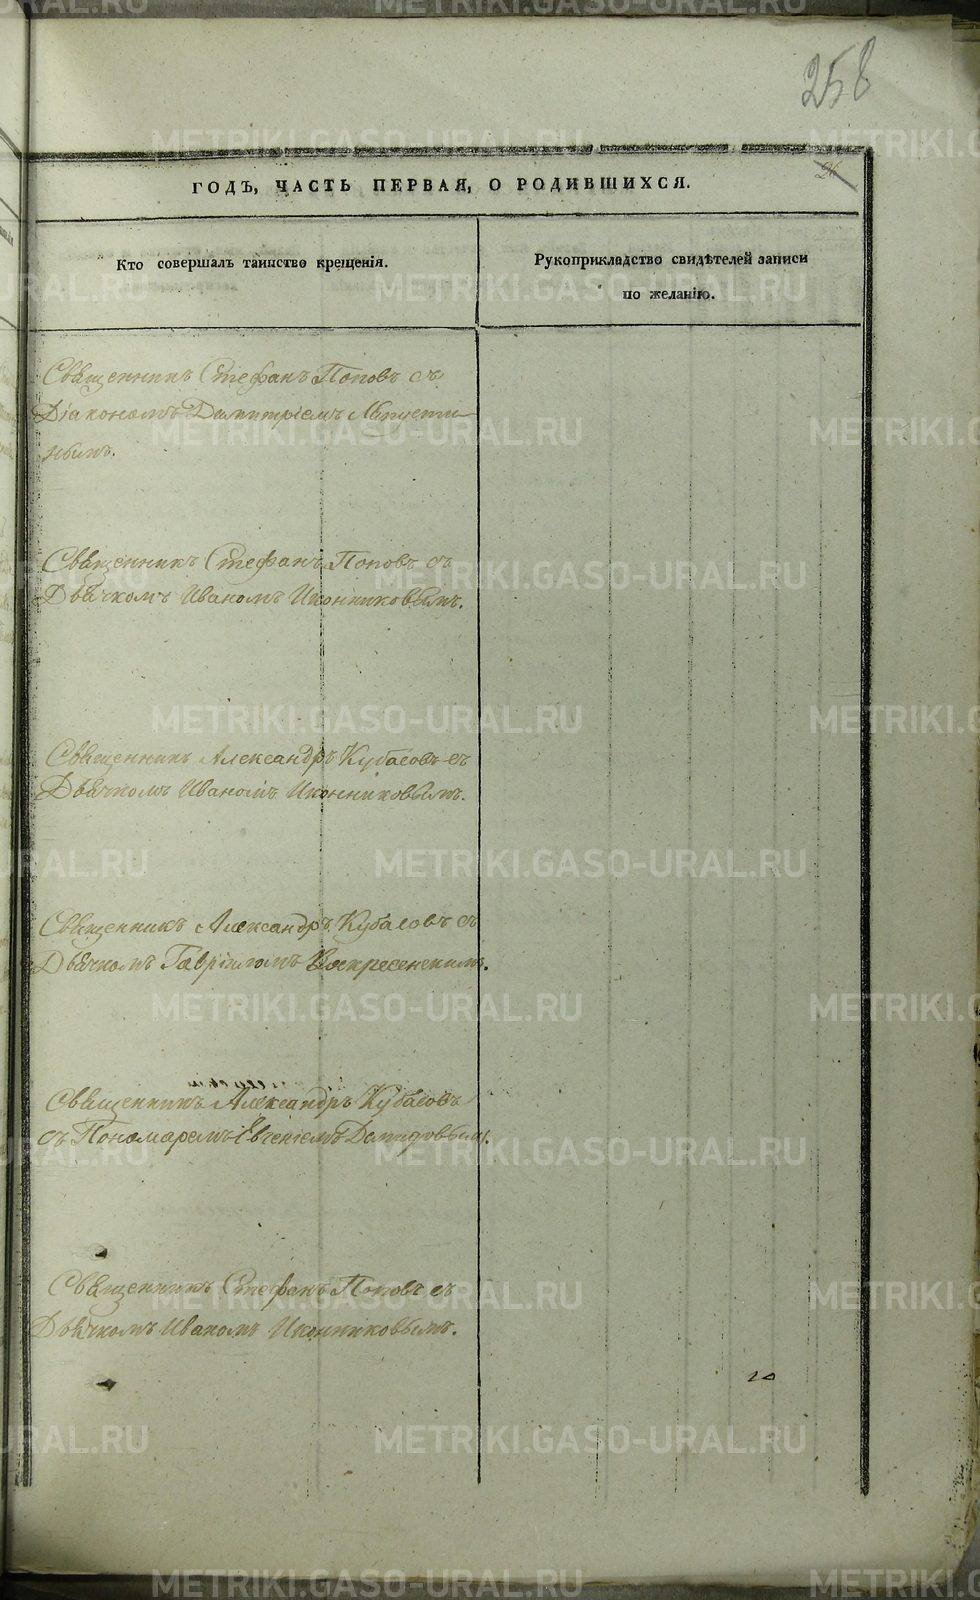 258
26
ГОДЪ, ЧАСТЬ ПЕРВАЯ, О РОДИВШИХСЯ.
Кто совершалъ таинство крещенія.
Рукоприкладство свидѣтелей записи
по желанію.
Священникъ Стефанъ Поповъ съ
Діакономъ Димитріемъ
нымъ.
Священникъ Стефанъ Поповъ съ
Дьячкомъ Иваномъ Иконниковымъ.
Священникъ Александръ Кубасовъ съ
Дьячкомъ Иваномъ Иконниковымъ.
Священникъ Александръ Кубасовъ съ
Дьячкомъ Гавріиломъ Воскресенскимъ.
Священникъ Александръ Кубасовъ
съ Пономаремъ Евгеніемъ Демидовымъ.
Священникъ Стефанъ Поповъ съ
Дьячкомъ Иваномъ Иконниковымъ.
METRIKI.GASO-URAL.RU